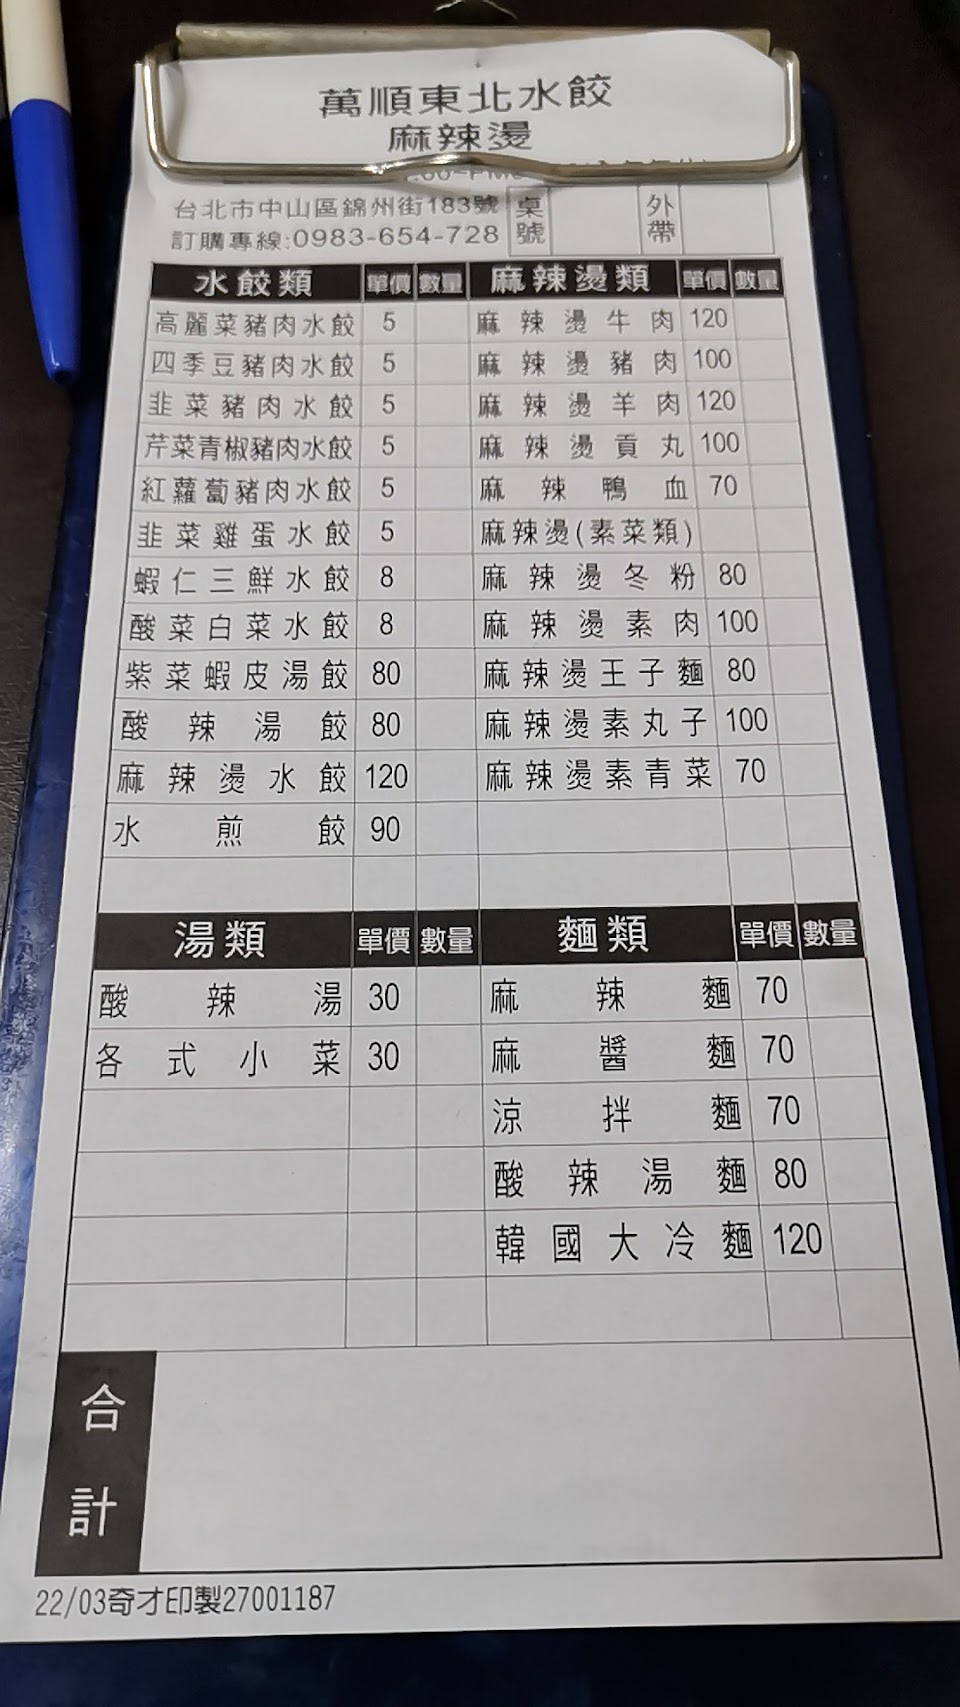 萬順東北水餃
麻辣燙
台北市中山區錦州街183號
訂購專線:0983-654-728
桌號
外帶
水餃類 單價 數量
高麗菜豬肉水餃 5
四季豆豬肉水餃 5
韭菜豬肉水餃 5
芹菜青椒豬肉水餃 5
紅蘿蔔豬肉水餃 5
韭菜雞蛋水餃 5
蝦仁三鮮水餃 8
酸菜白菜水餃 8
紫菜蝦皮湯餃 80
酸辣湯餃 80
麻辣燙水餃 120
水煎餃 90
麻辣燙類 單價 數量
麻辣燙牛肉 120
麻辣燙豬肉 100
麻辣燙羊肉 120
麻辣燙貢丸 100
麻辣鴨血 70
麻辣燙(素菜類)
麻辣燙冬粉 80
麻辣燙素肉 100
麻辣燙王子麵 80
麻辣燙素丸子 100
麻辣燙素青菜 70
湯類 單價 數量
酸辣湯 30
各式小菜 30
麵類 單價 數量
麻辣麵 70
麻醬麵 70
涼拌麵 70
酸辣湯麵 80
韓國大冷麵 120
合計
22/03奇才印製27001187